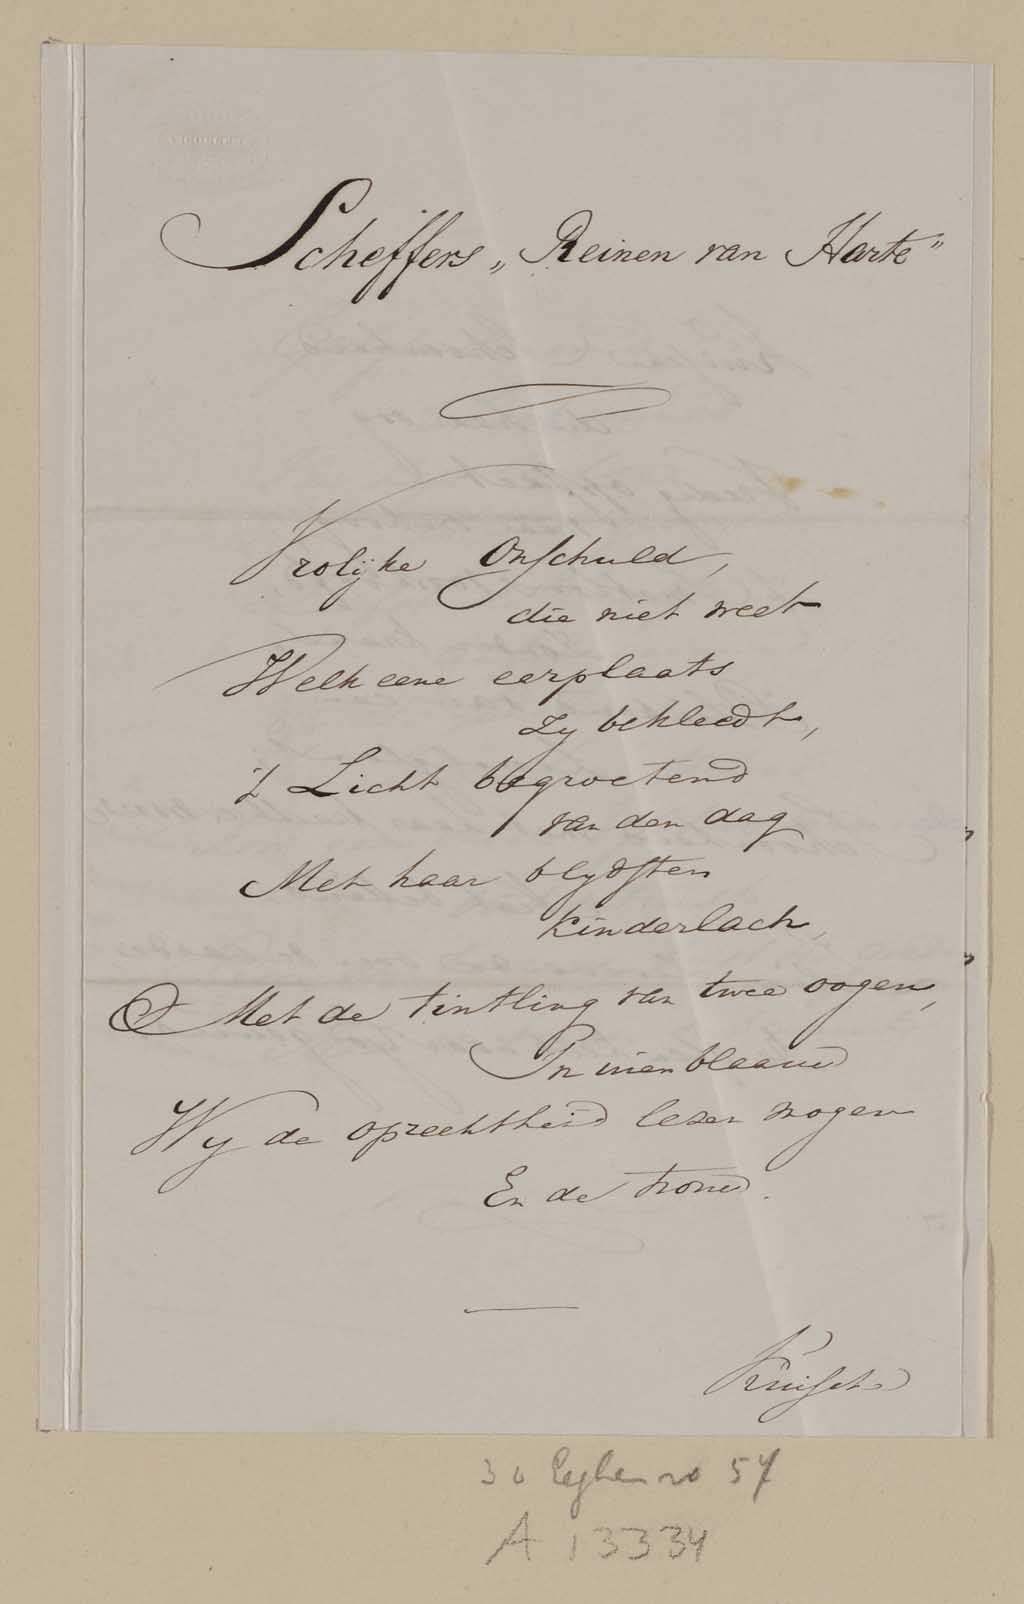 Scheffers „Reinen van Harte"
Vrolijke Onschuld,
die niet weet
Welk eene eerplaats
zy bekleedt,
't Licht begroetend
van den dag
Met haar blydsten
kinderlach,
Met de tintling van twee oogen,
In wier blaauw
Wy de oprechtheid lezen mogen
En de trouw.
Kruseman
A 13334